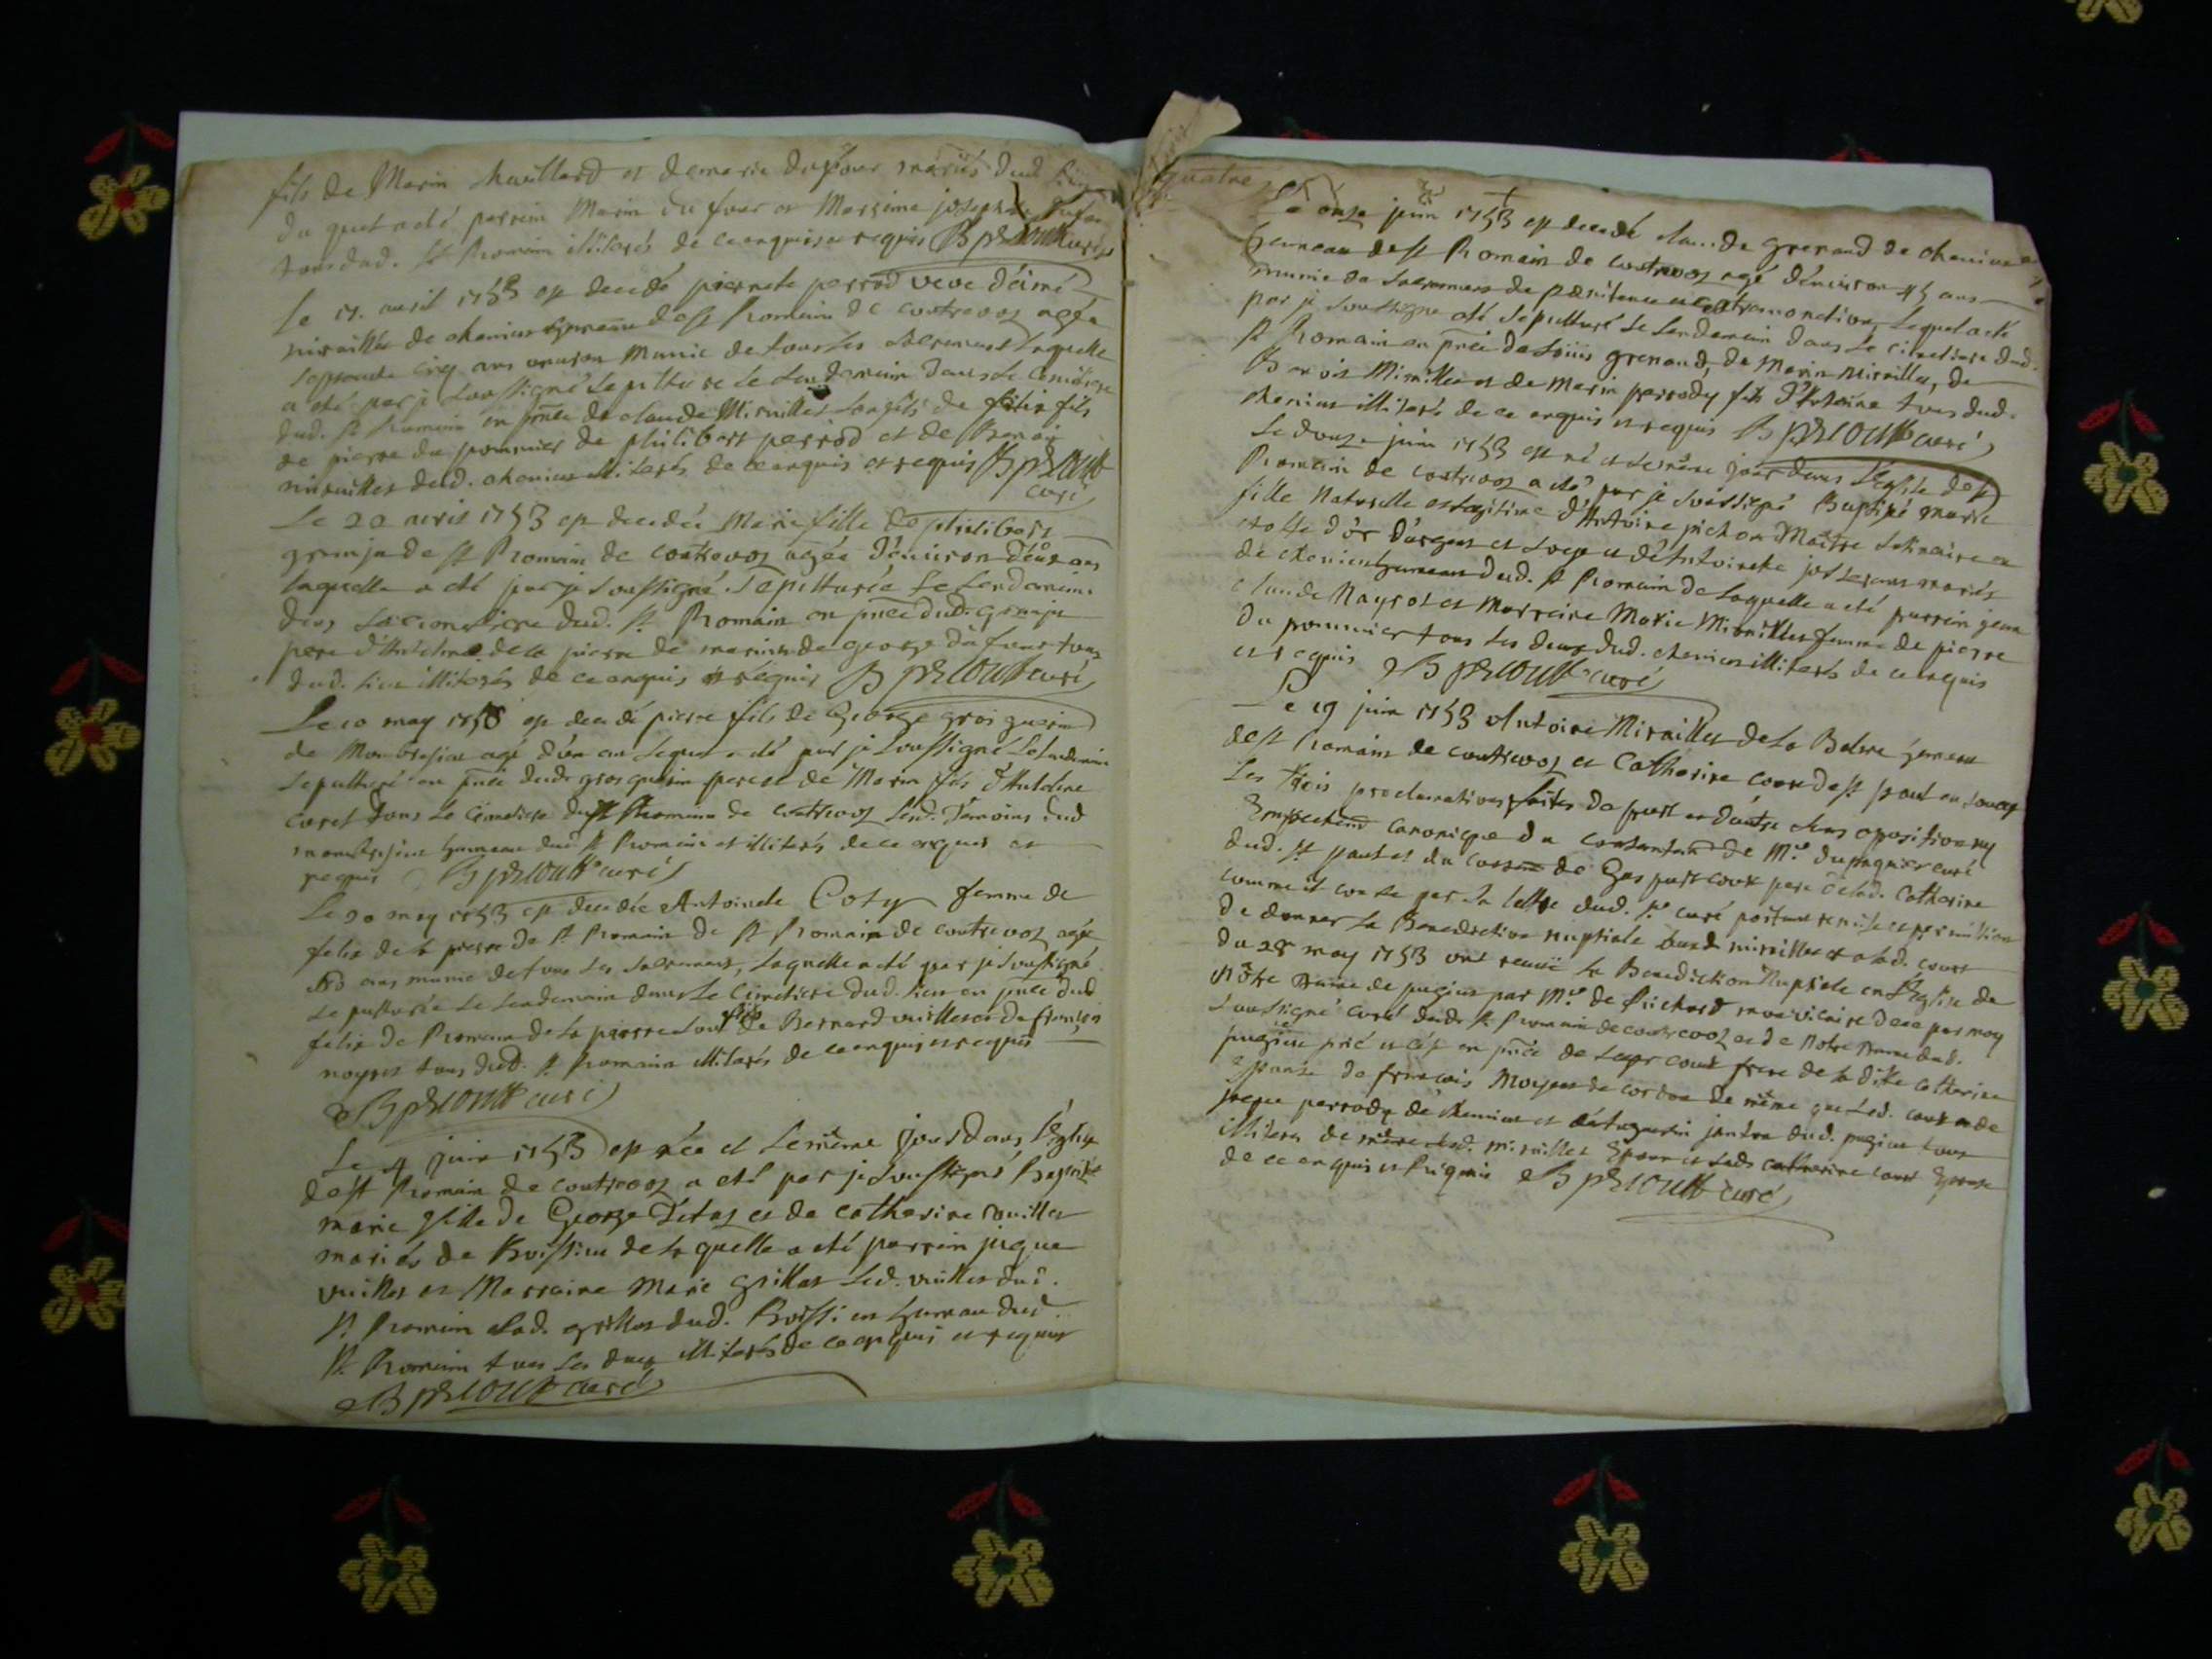 fils de Marin Mauillard et de marie dufour mariés dud.
du quel a eté parrein Marin du four et Marrime josephte
tous dud. St Romain illiterés de ce enquis et requis B prLoutt curé
Le 17. auril 1753 est decedé pierrete perrod veve d'aimé
miraillet de chenius hameau de St Romain de coutrevoz agée
soissante cinq ans enuiron Munie de tous les sacremens Laquelle
a eté par je soussigné sepulturée le Lendemain dans Le Cimetiere
dud. St Romain en pnce de claude Miraillet son fils de felix fils
de pierre du pommier de philibert perrod et de Benoit
miraillet dud. chenius illiterés de ce enquis et requis B prLoutt
curé
Le 20 avril 1753 est decedée Marie fille de philibert
grinju de St Romain de coutrevoz agée d'enuiron deux ans
laquelle a eté par je soussigné sepulturée Le Lendemain
dans Le cimetiere dud. St Romain en pnce dud. grinju
pere d'Antelme de la pierre de marin de george du four tous
dud. lieu illiterés de ce enquis et requis B prLoutt curé
Le 10 may 1753 est decedé pierre fils de George gros guerin
de Monbresieu agé d'un an Lequel a eté par je soussigné Le Lendemain
sepulturé en pnce dud. gros guerin pere et de Marin fils d'Antelme
coret dans Le Cimetiere dud. St Romain de coutrevoz Lesd. Temoins dud.
monbresieu hameau dud. St Romain et illiterés de ce enquis et
requis B prLoutt curé
Le 20 may 1753 est decedée Antoinete Coty femme de
felix de la pierre de St Romain de St Romain de coutrevoz agée
ans munie de tous Les sacremens, Laquelle a eté par je soussigné
sepulturée Le Lendemain dans Le Cimetiere dud. lieu en pnce dud.
felix de Romain de la pierre son fils de Bernard vuillerod de françois
noyret tous dud. St Romain illiterés de ce enquis et requis
B prLoutt curé
Le 4 juin 1753 est née et Le même jour dans l'Eglise
de St Romain de coutrevoz a eté par je soussigné Baptisée
marie fille de George Tétaz et de catherine vuillet
mariés de Boissieu de la quelle a eté parrein jique
vuillet et Marraine Marie grillet Led. vuillet dud.
St Romain Lad. grillet dud. Boissieu hameau dud.
St Romain tous les deux illiterés de ce enquis et requis
B prLoutt curé
quatre
Le onze juin 1753 est decedé claude grenand de chenius
hameau de St Romain de coutrevoz agé d'enuiron 45 ans
munie de sacremens de pœnitence et extremonction, Lequel a eté
par je soussigné eté sepulturé Le Lendemain dans Le cimetiere dud.
St Romain en pnce de Loüis grenand, de Marin Miraillet, de
Benoit Miraillet et de Marin perrody fils d'Antoine tous dud.
chenius illiterés de ce enquis et requis B prLoutt curé
Le douze juin 1753 est né et Le même jour dans L'eglise de St
Romain de coutrevoz a eté par je soussigné Baptisée marie
fille Naturelle et Legitime d'Antoine pichon Maître satinaire en
étoffe d'or d'argent et soye et d'Antoinete josserand mariés
de chenius hameau dud. St Romain de Laquelle a eté parrein jean
claude Mayrot et Marreine Marie Miraillet femme de pierre
du pommier tous les deux dud. chenius illiterés de ce enquis
et requis B prLoutt curé
Le 19 juin 1753 Antoine Miraillet de La Balme hameau
de St Romain de coutrevoz et Catherine court de St paul en
Les trois proclamations faites de part et d'autre sans opposition ny
Empechem canonique du consentem de Mre dupasquier curé
dud. St paul et du consem de Gaspard court pere de lad. Catherine
comme il conste par La lettre dud. Sr curé portant remise et permission
de donner La Benediction nuptiale aud. miraillet et a lad. court
du 28 may 1753 ont receüe La Benediction Nuptiale en L'Eglise de
Nôtre Dame de pugieu par Mre de Suichard mon vicaire de ce par moy
soussigné curé dud. St Romain de coutrevoz et de Notre Dame dud.
pugieu prié et ce en pnce de court frere de la dite catherine
Epouse de françois Moyet de cordon de même que Led. court et de
jique perrody de chenius et d'Augustin jantin dud. pugieu tous
illiteres de même Led. miraillet Epoux et Lad. catherine court Epouse
de ce enquis et Requis B prLoutt curé